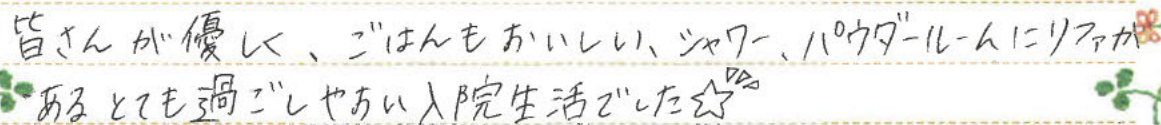 皆さんが優しく、ごはんもおいしい、シャワー、パウダールームにリファが
あるとても過ごしやすい入院生活でした☆